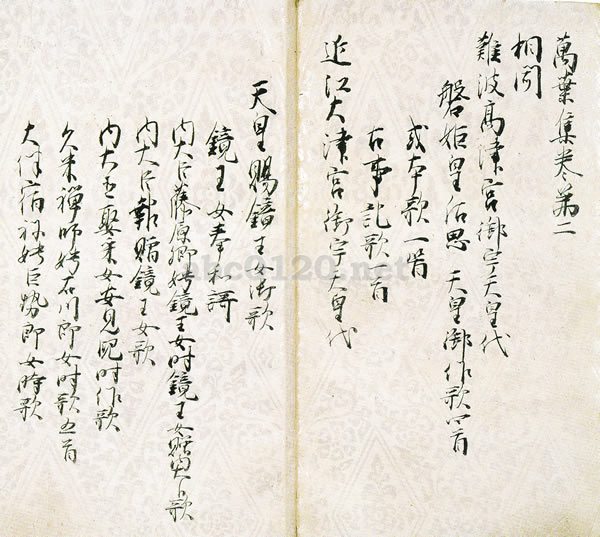 萬葉集巻第二
相聞
難波高津宮御宇天皇代
磐姫皇后思天皇御作歌四首
或本歌一首
古事記歌一首
近江大津宮御宇天皇代
天皇賜鏡王女御歌
鏡王女奉和謌
内大臣藤原卿娉鏡王女時鏡王女贈内大臣歌
内大臣報贈鏡王女歌
内大臣娶采女安見児時作歌
久米禅師娉石川郎女時歌五首
大伴宿祢娉巨勢郎女時歌
abc0120.net